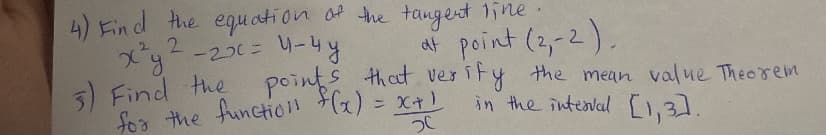 4) Find the equation of the tangent line.
x²y² - 2x = 4 - 4y at point (2, -2).
5) Find the points that verify the mean value Theorem
for the function f(x) = x+1/x in the interval [1,3].